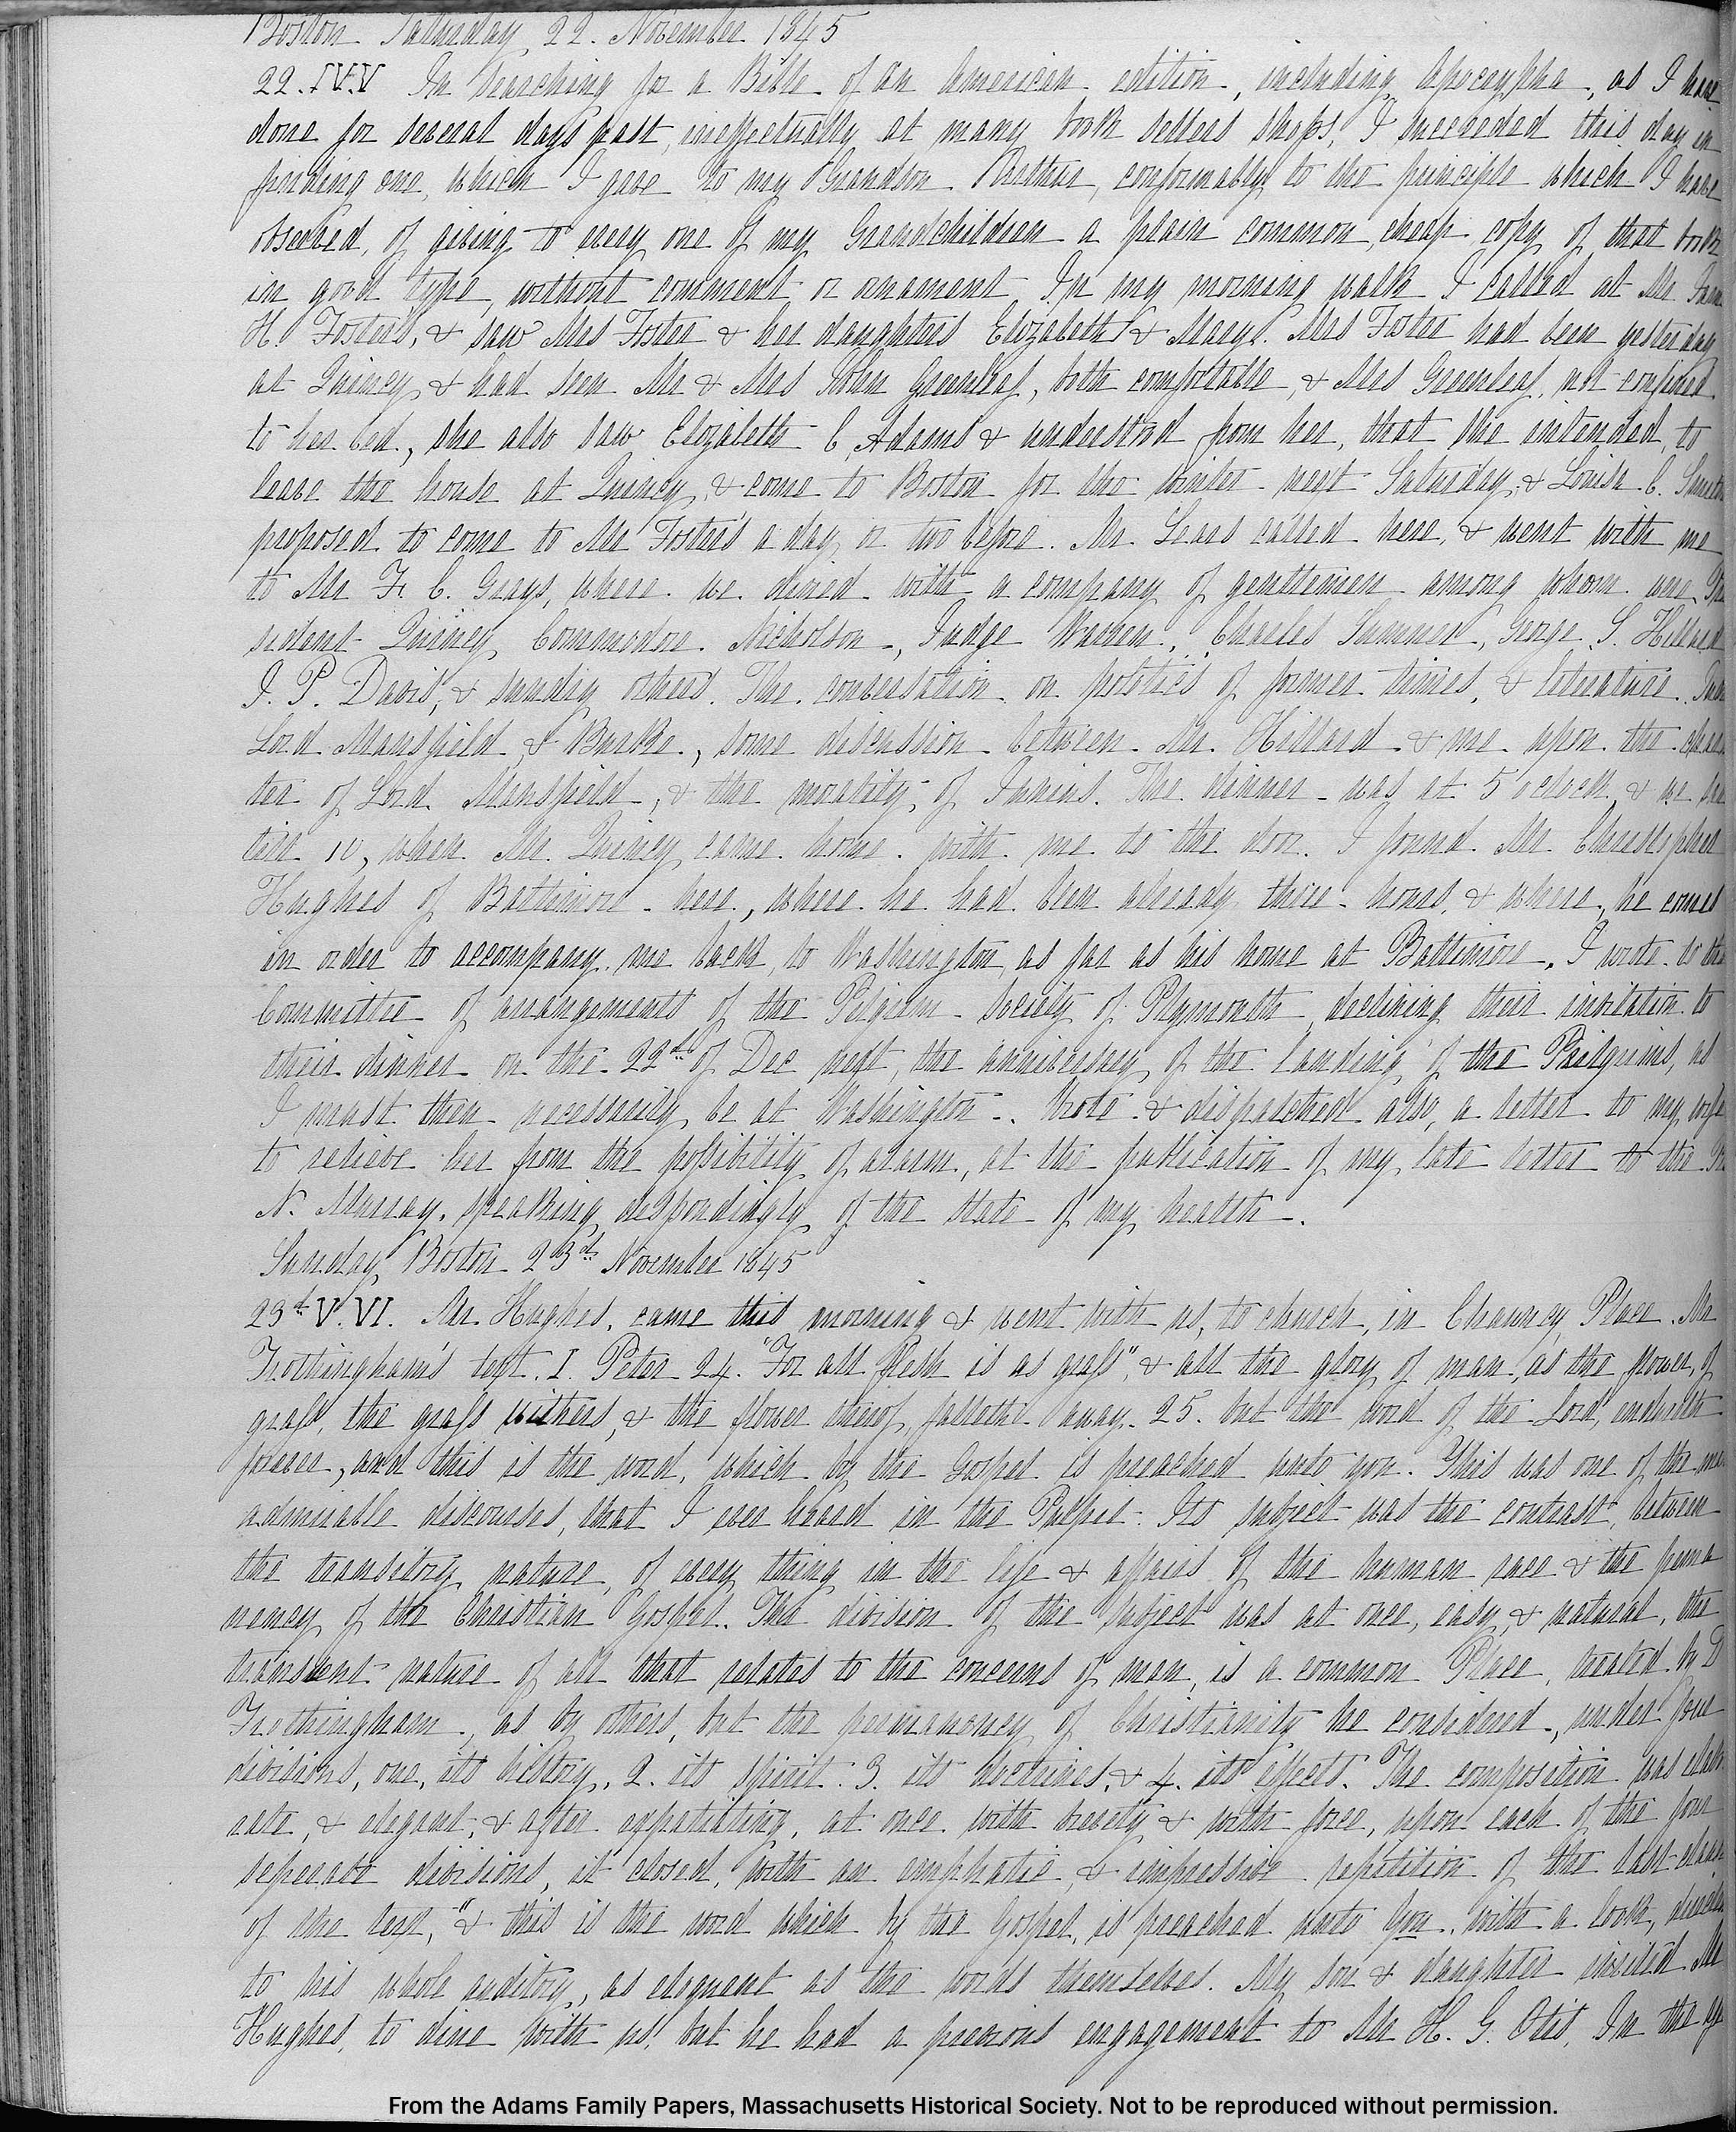 Boston Saturday 22. November 1845
22. IV.V In searching for a Bible of an American edition, including Apocrypha, as I have
done for several days past, ineffectually at many book sellers shops, I succeeded this day in
finding one, which I gave to my Grandson Arthur, conformably to the principle which I have
observed, of giving to every one of my Grandchildren a plain common cheap copy of that book
in good type, without comment or ornament In my morning walk I called at Mr
H. Fosters, & saw Mrs Foster & her daughters Elizabeth & Mary. Mrs Foster had been yesterday
at Quincy & had seen Mr & Mrs John Greenleaf, both comfortable, & Mrs Greenleaf, not confined
to her bed, she also saw Elizabeth C. Adams & understood from her, that she intended, to
leave the house at Quincy, & come to Boston for the winter next Saturday, & Louisa C. Smith
proposed to come to Mr Foster's a day or two before. Mr. Sears called here, & went with me
to Mr F. C. Grays, where we dined with a company of gentlemen among whom were Pre
sident Quincy, Commodore Nicholson, Judge Warren, Charles Sumner, George S. Hillard
I. P. Davis, & sundry others. The conversation on politics of former times, & literature.
Lord Mansfield, & Burke, some discussion between Mr. Hillard & me upon the charac
ter of Lord Mansfield, & the morality of Junius. The dinner was at 5 oclock, & we
till 10, when Mr. Quincy came home with me to the door. I found Mr Christopher
Hughes of Baltimore here, where he had been already three hours, & where he comes
in order to accompany me back, to Washington as far as his home at Baltimore. I wrote to the
Committee of arrangements of the Pilgrim Society of Plymouth declining their invitation to
their dinner on the 22d of Dec next, the anniversary of the landing of the Pilgrims, as
I must then necessarily be at Washington. Wrote & dispatched also, a letter to my wife
to relieve her from the possibility of alarm, at the publication of my late letter to the
N. Murray, speaking despondingly of the state of my health.
Sunday, Boston 23d November 1845
23d V. VI. Mr. Hughes, came this morning & went with us, to church, in Chauncy Place. Mr
Frothingham's text. I. Peter 24. "For all flesh is as grass", & all the glory of man, as the flower, of
grass, the grass withers, & the flower therof, falleth away. 25. but the word of the Lord, endureth
forever, and this is the word, which by the Gospel is preached unto you. This was one of the most
admirable discourses, that I ever heard in the Pulpit. Its subject was the contrast, between
the transitory nature, of every thing in the life & affairs of the human race & the perma
nency of the Christian Gospel. The division of the subject was at once, easy, & natural, the
transient nature of all that relates to the concerns of man, is a common Place, treated by D
Frothingham, as by others, but the permanency of Christianity he considered, under four
divisions, one, its history, 2. its spirit. 3. its doctrines, & 4. its effects. The composition was elabo
rate, & elegant, & after expatiating, at once with brevity & with force, upon each of the four
seperate divisions, it closed, with an emphatic, & impressive repetition of the last clause
of the text, "& this is the word which by the Gospel, is preached unto you, with a look, directed
to his whole auditory, as eloquent as the words themselves. My son & daughter invited Mr
Hughes, to dine with us, but he had a previous engagement to Mr H. G. Otis. In the
From the Adams Family Papers, Massachusetts Historical Society. Not to be reproduced without permission.